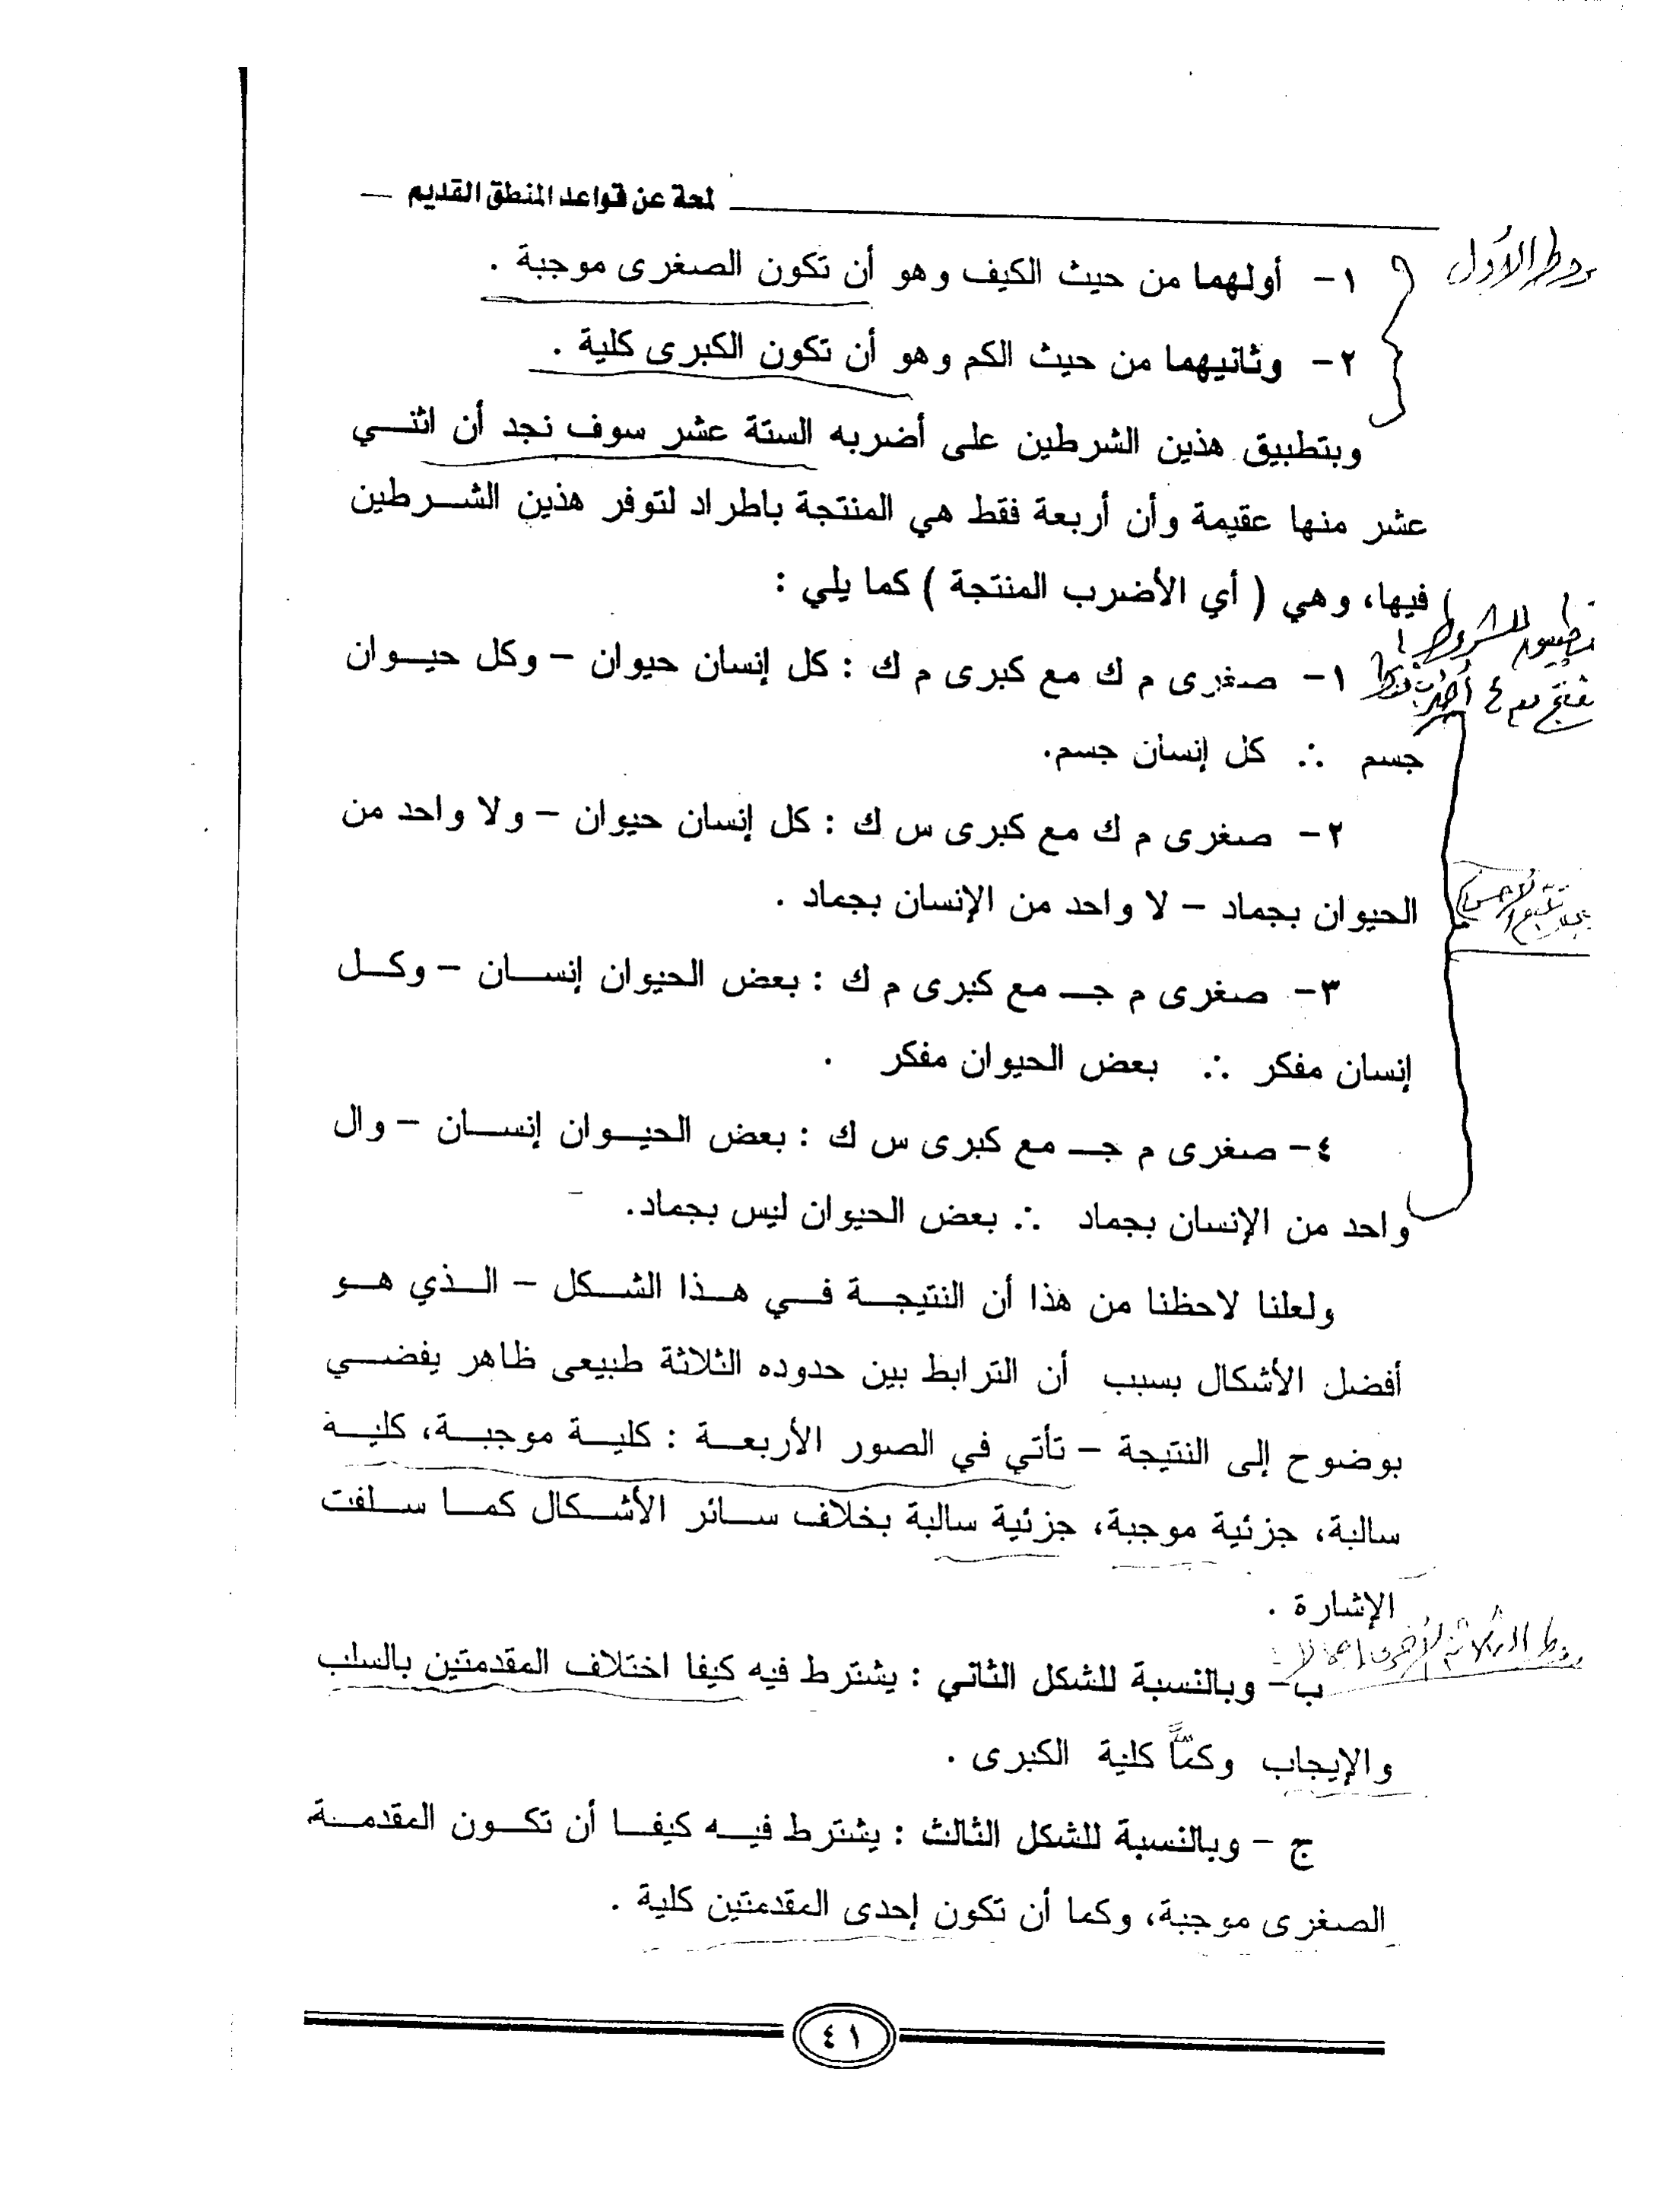 لمحة عن قواعد المنطق القديم
١- أولهما من حيث الكيف وهو أن تكون الصغرى موجبة .
٢- وثانيهما من حيث الكم وهو أن تكون الكبرى كلية .
وبتطبيق هذين الشرطين على أضربه الستة عشر سوف نجد أن اثنـــي
عشر منها عقيمة وأن أربعة فقط هي المنتجة باطراد لتوفر هذين الشــرطين
فيها، وهي ( أي الأضرب المنتجة ) كما يلي :
١- صغرى م ك مع كبرى م ك : كل إنسان حيوان – وكل حيــوان
جسم ∴ كل إنسان جسم.
٢- صغرى م ك مع كبرى س ك : كل إنسان حيوان – ولا واحد من
الحيوان بجماد – لا واحد من الإنسان بجماد .
٣- صغرى م جــ مع كبرى م ك : بعض الحيوان إنســان – وكــل
إنسان مفكر ∴ بعض الحيوان مفكر .
٤- صغرى م جــ مع كبرى س ك : بعض الحيــوان إنســان – وال
واحد من الإنسان بجماد ∴ بعض الحيوان ليس بجماد.
ولعلنا لاحظنا من هذا أن النتيجــة فــي هــذا الشــكل – الــذي هــو
أفضل الأشكال بسبب أن الترابط بين حدوده الثلاثة طبيعى ظاهر يفضــي
بوضوح إلى النتيجة – تأتي في الصور الأربعــة : كليــة موجبــة، كليــة
سالبة، جزئية موجبة، جزئية سالبة بخلاف ســائر الأشــكال كمــا ســلفت
الإشارة .
ب- وبالنسبة للشكل الثاني : يشترط فيه كيفا اختلاف المقدمتين بالسلب
والإيجاب وكمَّاً كلية الكبرى .
ج - وبالنسبة للشكل الثالث : يشترط فيــه كيفــا أن تكــون المقدمــة
الصغرى موجبة، وكما أن تكون إحدى المقدمتين كلية .
٤١